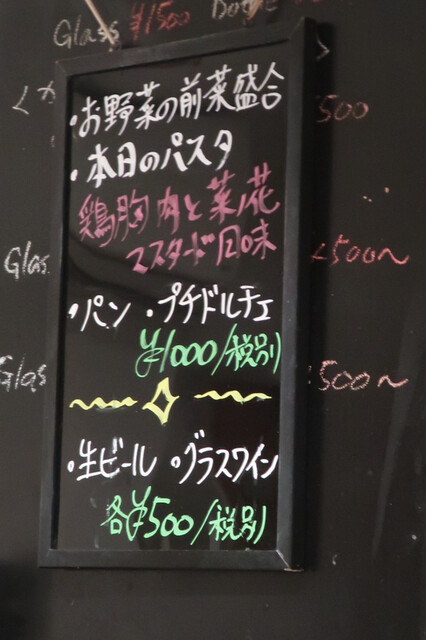 Glass ¥1500
・お野菜の前菜盛合
・本日のパスタ
鶏胸肉と菜ノ花
マスタード風味
・パン ・プチドルチェ
¥1000/税別
・生ビール ・グラスワイン
各¥500/税別
500
Glas
500〜
Glas
500〜